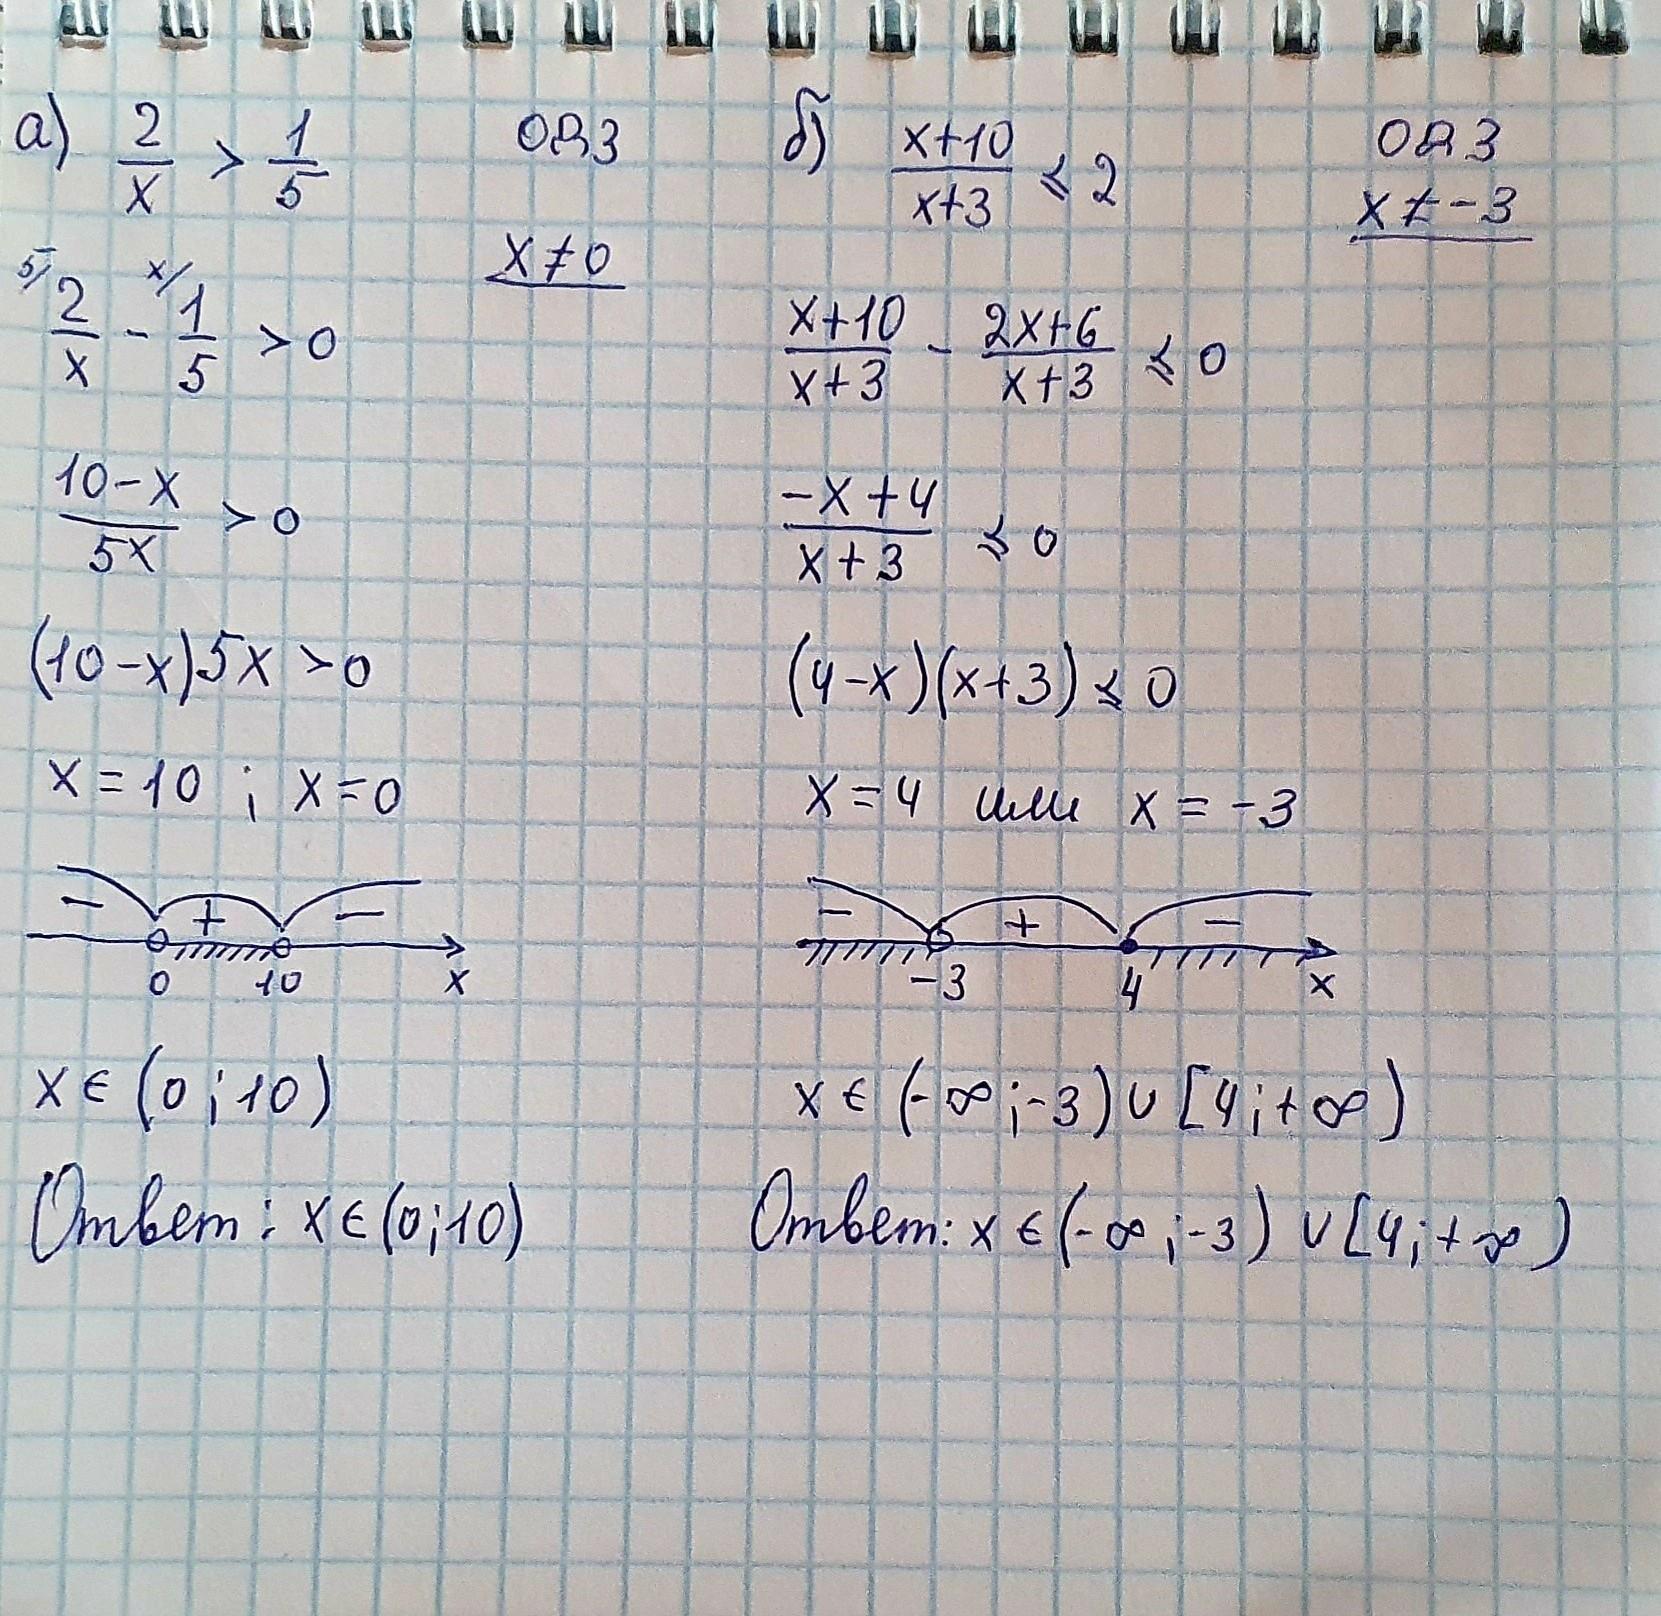 а) 2/x > 1/5
ОДЗ
x ≠ 0
5/ 2/x - x/ 1/5 > 0
(10-x)/(5x) > 0
(10-x)5x > 0
x = 10 ; x = 0
- + -
0 10 x
x ∈ (0 ; 10)
Ответ: x ∈ (0;10)
б) (x+10)/(x+3) ≤ 2
ОДЗ
x ≠ -3
(x+10)/(x+3) - (2x+6)/(x+3) ≤ 0
(-x+4)/(x+3) ≤ 0
(4-x)(x+3) ≤ 0
x = 4 или x = -3
- + -
-3 4 x
x ∈ (-∞ ; -3) ∪ [4 ; +∞)
Ответ: x ∈ (-∞ ; -3) ∪ [4 ; +∞)